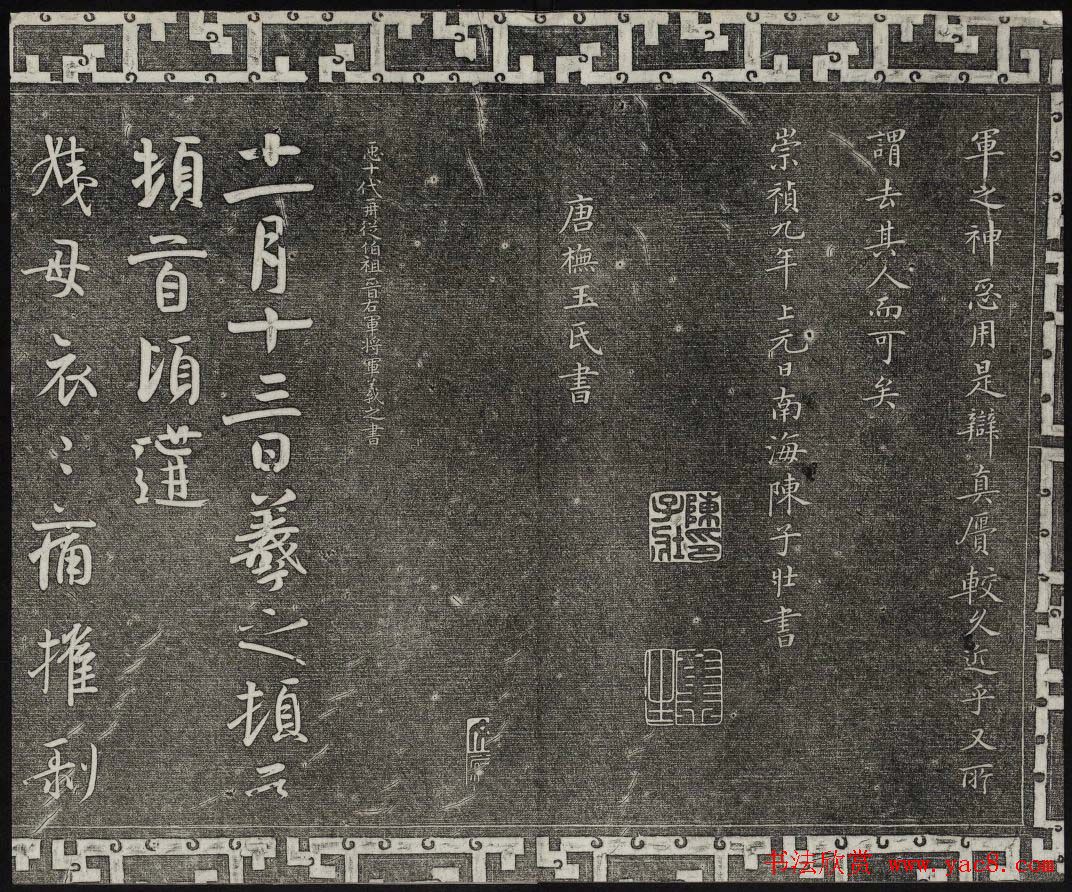 軍之神忌用是辯真贗較久近乎又所
謂去其人而可矣
崇禎九年上元日南海陳子壯書
陳子壯印
唐橅王氏書
臣十代再從伯祖晉右軍將軍羲之書
十一月十三日羲之頓首
頓首頃遘
姨母哀哀痛摧剥
书法欣赏 www.yac8.com